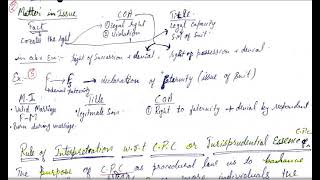 Matter in Issue
COA
Title
Fact
① legal right
Legal capacity
② Violation
Creates the right
of suit
In above Ex:-
Right of Succession + denial
Right of possession + denial
Ex. ③
F
declaration of paternity (issue of suit)
M·I
Title
COA
Valid Marriage
Legitimate Son
① Right to paternity + denial by
F-M
Born during marriage
Rule of Interpretation w.r.t C.P.C or Jurisprudential Essence of
The purpose of C.P.C as procedural law is to
individuals the